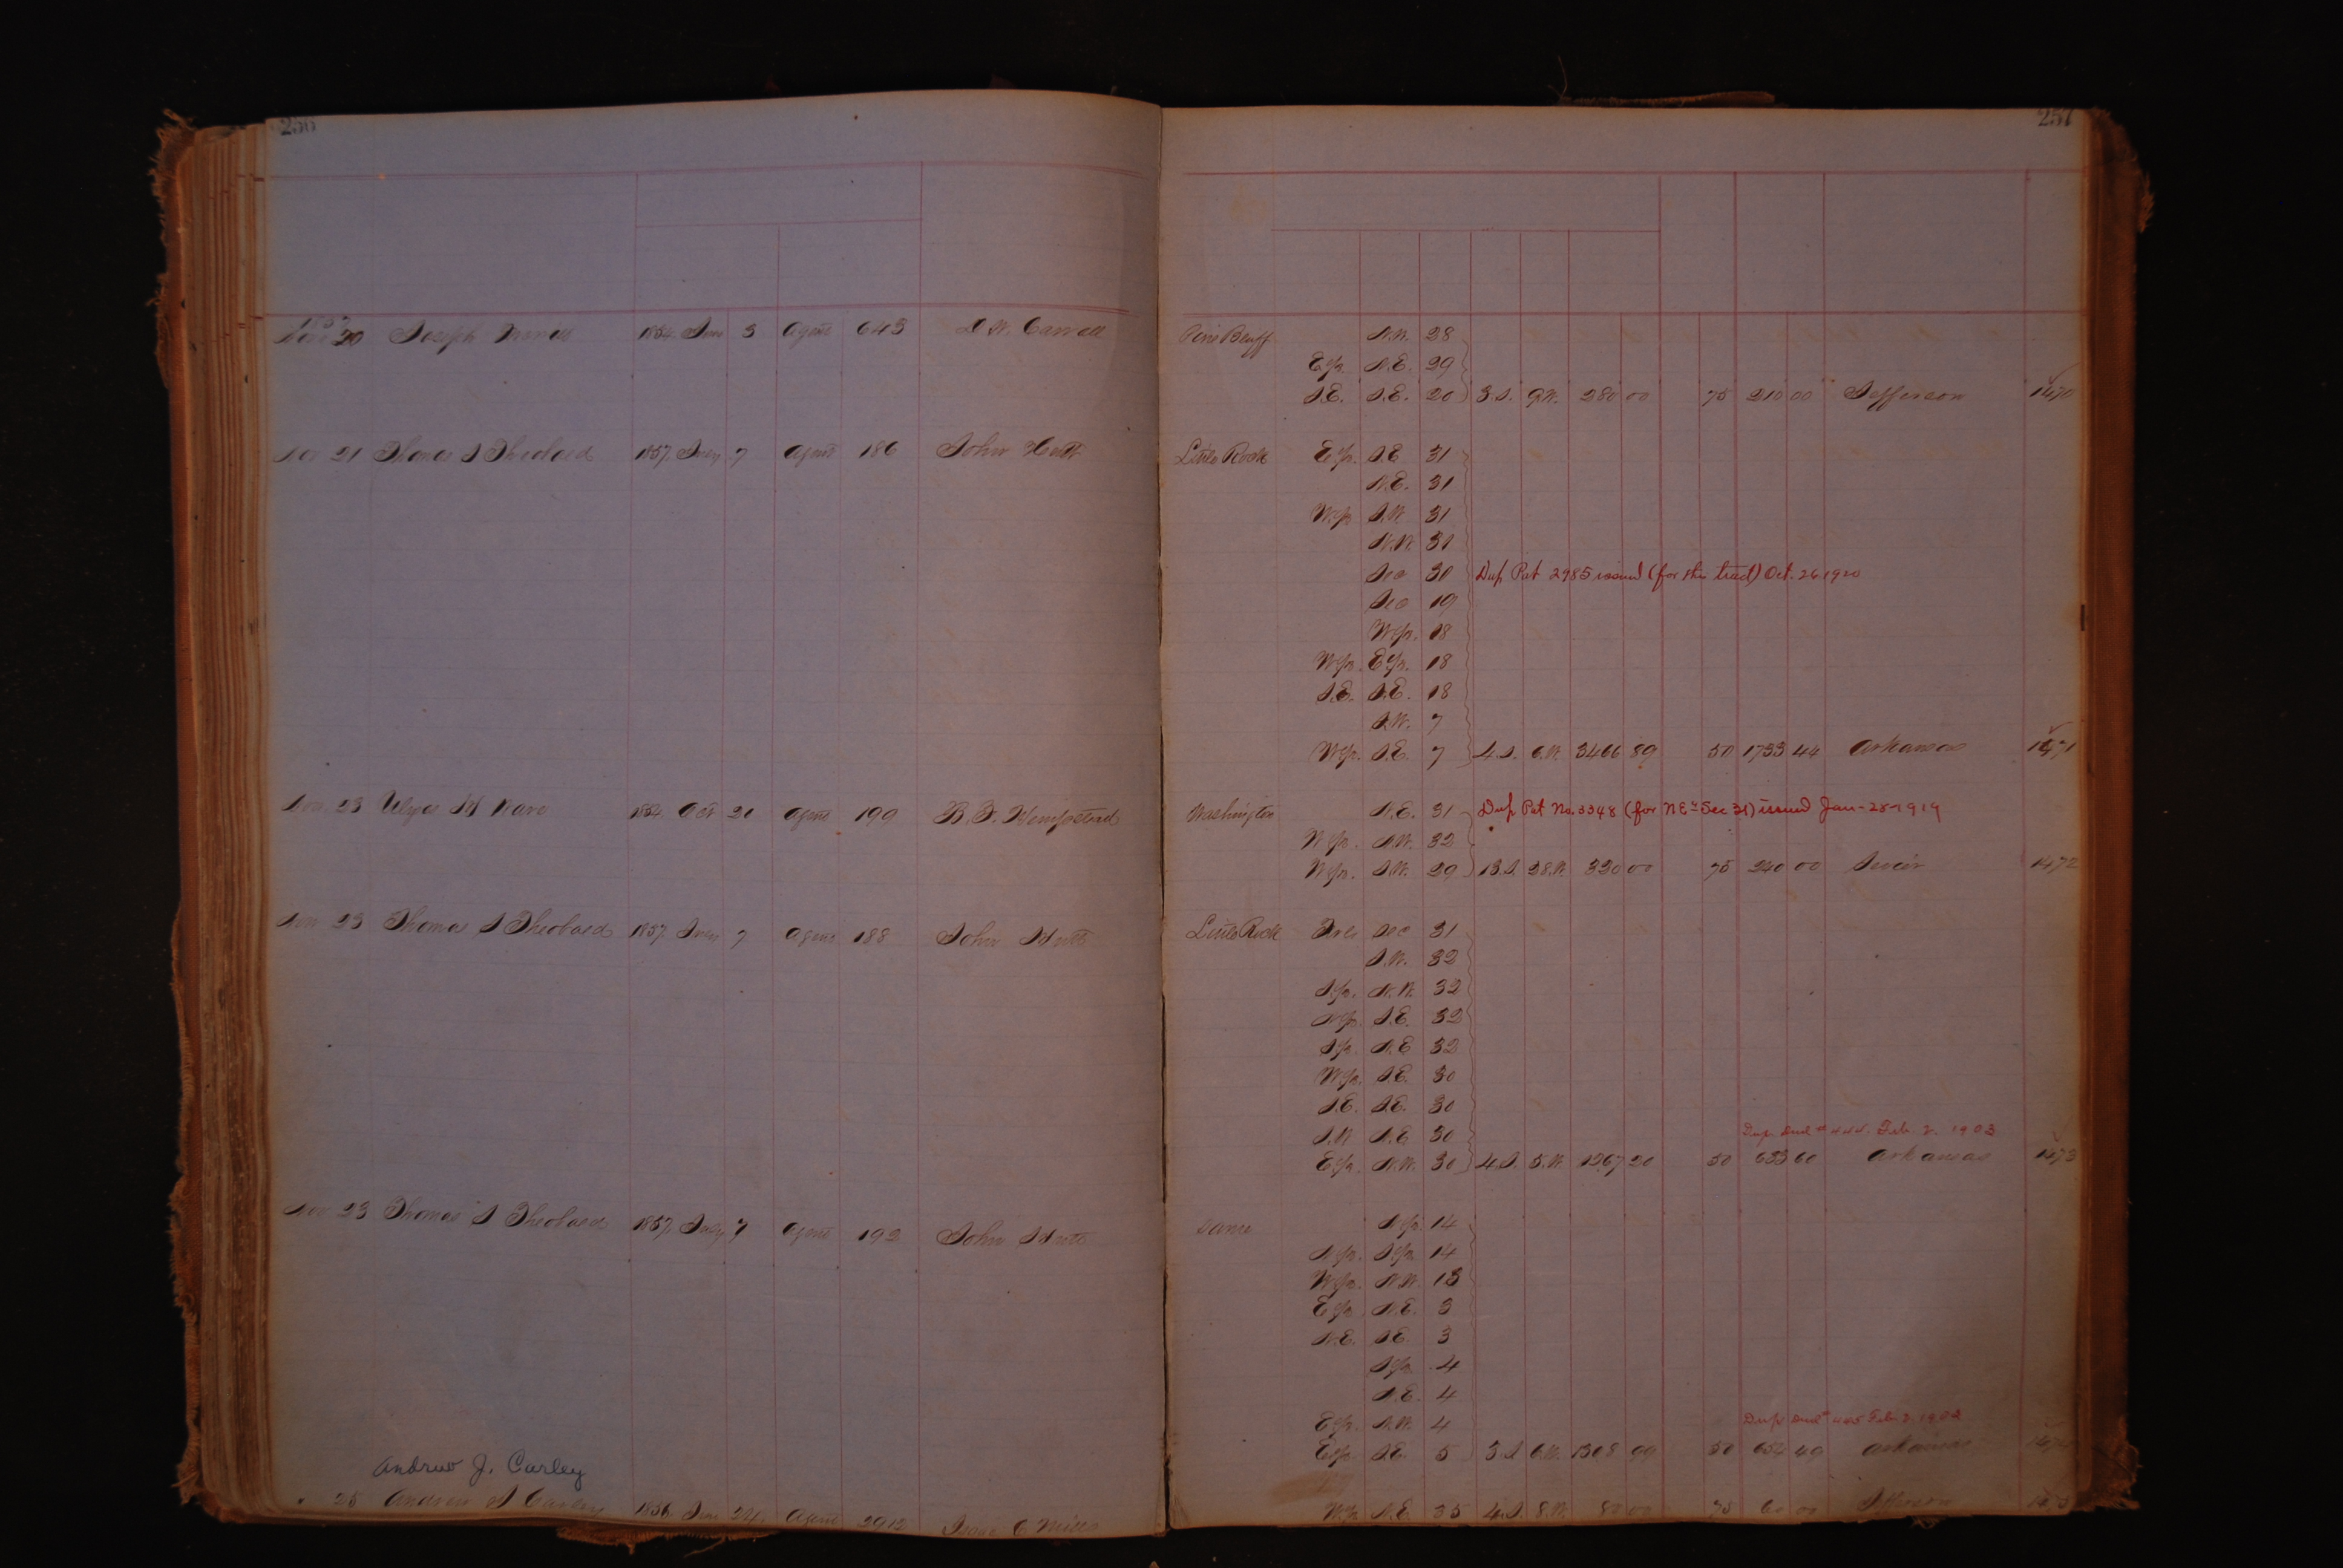 256
257
1857
Nov 20 Joseph 1854 Jan 3 Agent 645 D. W. Carroll Pine Bluff N.W. 28
E½ N.E. 29
S.E. S.E. 20 3.S. 9.W. 280 00 75 210 00 Jefferson 1470
Nov 21 Thomas S Theobald 1857 July 7 Agent 186 John Hutt Little Rock E½ S.E. 31
N.E. 31
W½ S.W. 31
N.W. 31
Sec 30 Dup Pat 2985 issued (for this tract) Oct. 26 1920
Sec 19
W½ 18
W½ E½ 18
S.E. S.E. 18
S.W. 7
W½ S.E. 7 4.S. 6.W. 3466 89 50 1733 44 Arkansas 1471
Nov 23 Ware 1854 Oct 21 Agent 199 B. F. Hempstead Washington N.E. 31 Dup Pat No. 3348 (for NE¼ Sec 31) issued Jan-28-1919
W½ N.W. 32
W½ S.W. 29 13.S. 28.W. 320 00 75 240 00 Sevier 1472
Nov 23 Thomas S Theobald 1857 July 7 Agent 188 John Hutt Little Rock Frl Sec 31
S.W. 32
S½ N.W. 32
N½ S.E. 32
S½ N.E. 32
W½ S.E. 30
S.E. S.E. 30
S.W. N.E. 30 Dup Deed Feb. 2. 1903
E½ N.W. 30 4.S. 5.W. 1267 20 50 633 60 Arkansas 1473
Nov 23 Thomas S Theobald 1857 July 7 Agent 192 John Hutt Same N½ 14
N½ S½ 14
W½ N.W. 13
E½ N.E. 3
N.E. S.E. 3
S½ 4
N.E. 4
E½ N.W. 4 Dup Deed Feb. 2.
E½ S.E. 5 3.S. 6.W. 1308 99 50 654 49 Arkansas
Andrew J. Curley
" 25 Andrew J Curley 1856 Jan 24 Agent 2912 Isaac C Mills W½ N.E. 35 4.S. 8.W. 80 00 75 60 00 Jefferson